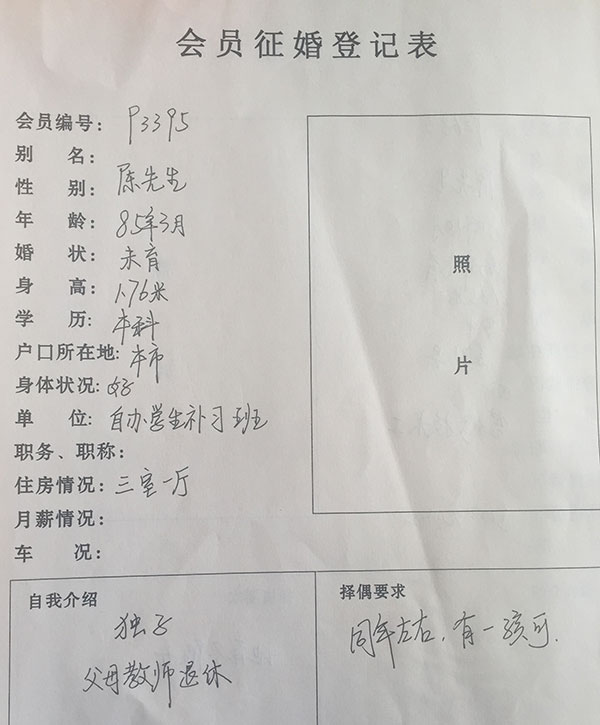 会员征婚登记表
会员编号: P3395
别 名:
性 别: 陈先生
年 龄: 85年3月
婚 状: 未育
身 高: 1.76米
学 历: 本科
户口所在地: 本市
身体状况: 好
单 位: 自办学生补习班
职务、职称:
住房情况: 三室一厅
月薪情况:
车 况:
照
片
自我介绍
独子
父母教师退休
择偶要求
同年左右,有一孩可.